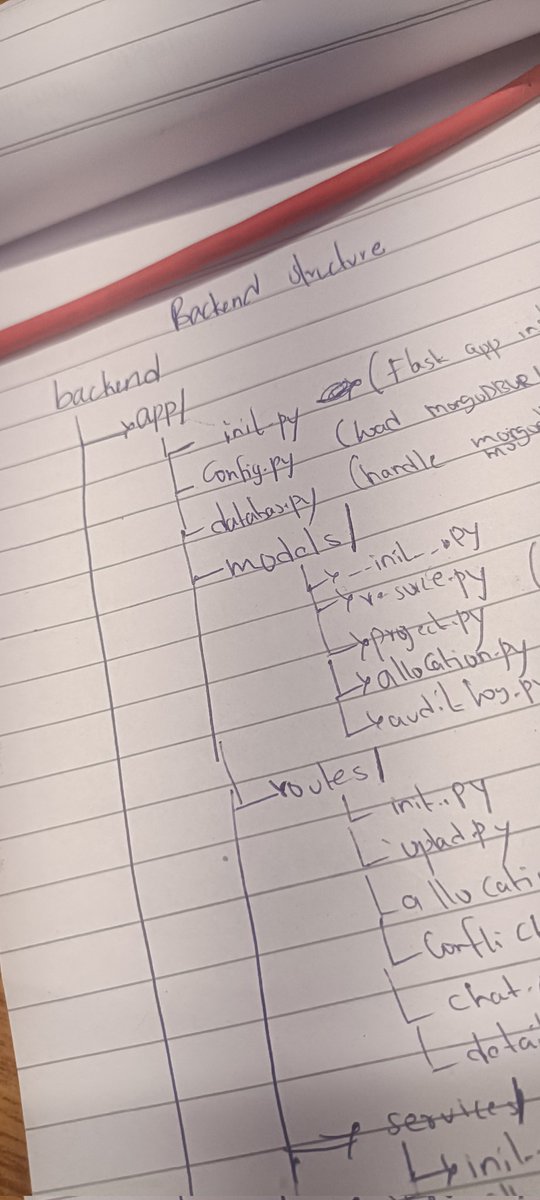 Backend structure
backend
app/
init.py (Flask app in
Config.py (load
database.py (handle
models/
__init__.py
project.py
allocation.py
audit_log.p
routes/
init.py
upload.py
allocati
Conflic
chat.
services/
init